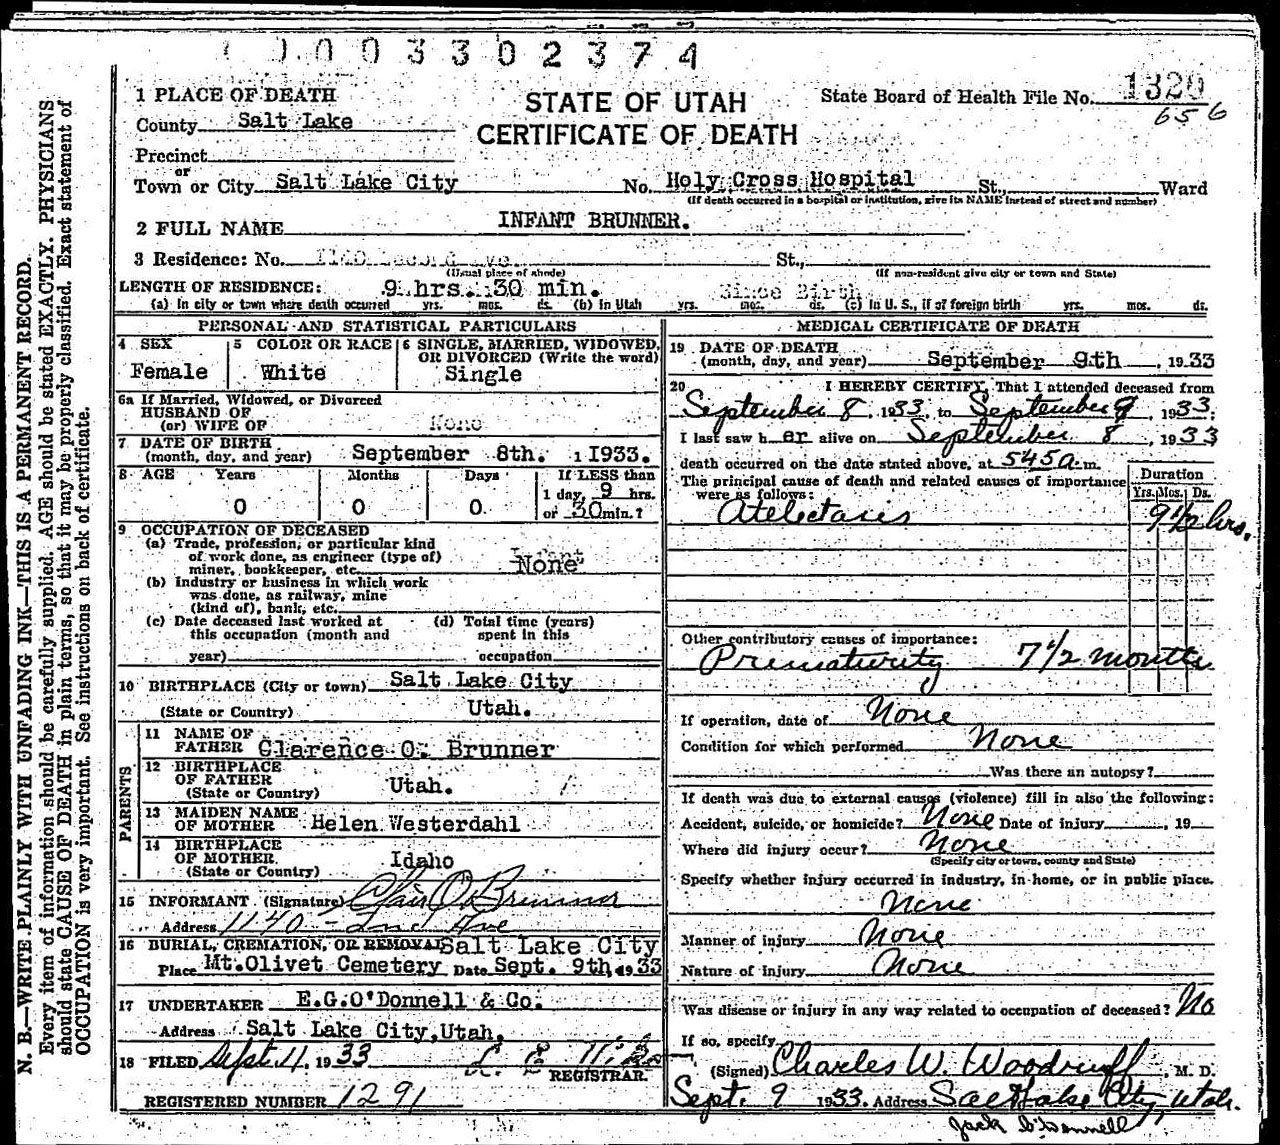 0003302374
1 PLACE OF DEATH
STATE OF UTAH
CERTIFICATE OF DEATH
State Board of Health File No. 1320
656
County Salt Lake
Precinct
or
Town or City Salt Lake City No. Holy Cross Hospital St., Ward
(If death occurred in a hospital or institution, give its NAME instead of street and number)
2 FULL NAME INFANT BRUNNER.
3 Residence: No. 1140 Second Ave. St.,
(Usual place of abode) (If non-resident give city or town and State)
LENGTH OF RESIDENCE: 9 hrs. 30 min. Since Birth
(a) In city or town where death occurred yrs. mos. ds. (b) in Utah yrs. mos. ds. (c) In U. S., if of foreign birth yrs. mos. ds.
PERSONAL AND STATISTICAL PARTICULARS
4 SEX 5 COLOR OR RACE 6 SINGLE, MARRIED, WIDOWED,
OR DIVORCED (Write the word)
Female White Single
6a If Married, Widowed, or Divorced
HUSBAND OF
(or) WIFE OF None
7 DATE OF BIRTH
(month, day, and year) September 8th. 1933.
8 AGE Years Months Days If LESS than
1 day, 9 hrs.
0 0 0 or 30 min.?
9 OCCUPATION OF DECEASED
(a) Trade, profession, or particular kind
of work done, as engineer (type of)
miner, bookkeeper, etc. Infant None
(b) Industry or business in which work
was done, as railway, mine
(kind of), bank, etc.
(c) Date deceased last worked at (d) Total time (years)
this occupation (month and spent in this
year) occupation
10 BIRTHPLACE (City or town) Salt Lake City
(State or Country) Utah.
PARENTS
11 NAME OF
FATHER Clarence O. Brunner
12 BIRTHPLACE
OF FATHER Utah.
(State or Country)
13 MAIDEN NAME
OF MOTHER Helen Westerdahl
14 BIRTHPLACE
OF MOTHER Idaho
(State or Country)
15 INFORMANT (Signature) Clair O. Brunner
Address 1140 - 2nd Ave
16 BURIAL, CREMATION, OR REMOVAL Salt Lake City
Place Mt. Olivet Cemetery Date Sept. 9th, 1933
17 UNDERTAKER E.G.O'Donnell & Co.
Address Salt Lake City, Utah.
18 FILED Sept. 11, 1933
REGISTRAR
REGISTERED NUMBER 1291
MEDICAL CERTIFICATE OF DEATH
19 DATE OF DEATH
(month, day, and year) September 9th , 1933
20 I HEREBY CERTIFY, That I attended deceased from
September 8, 1933, to September 9, 1933;
I last saw her alive on September 8, 1933
death occurred on the date stated above, at 545 a. m.
The principal cause of death and related causes of importance
were as follows:
Duration
Yrs. Mos. Ds.
Atelectasis 9 1/2 hrs.
Other contributory causes of importance:
Prematurity 7 1/2 months
If operation, date of None
Condition for which performed None
Was there an autopsy?
If death was due to external causes (violence) fill in also the following:
Accident, suicide, or homicide? None Date of injury , 19
Where did injury occur? None
(Specify city or town, county and State)
Specify whether injury occurred in industry, in home, or in public place.
None
Manner of injury None
Nature of injury None
Was disease or injury in any way related to occupation of deceased? No
If so, specify
(Signed) Charles W. Woodruff, M. D.
Sept. 9 1933. Address Salt Lake City, Utah.
Jack O'Donnell
N. B.—WRITE PLAINLY WITH UNFADING INK—THIS IS A PERMANENT RECORD.
Every item of information should be carefully supplied. AGE should be stated EXACTLY. PHYSICIANS
should state CAUSE OF DEATH in plain terms, so that it may be properly classified. Exact statement of
OCCUPATION is very important. See instructions on back of certificate.